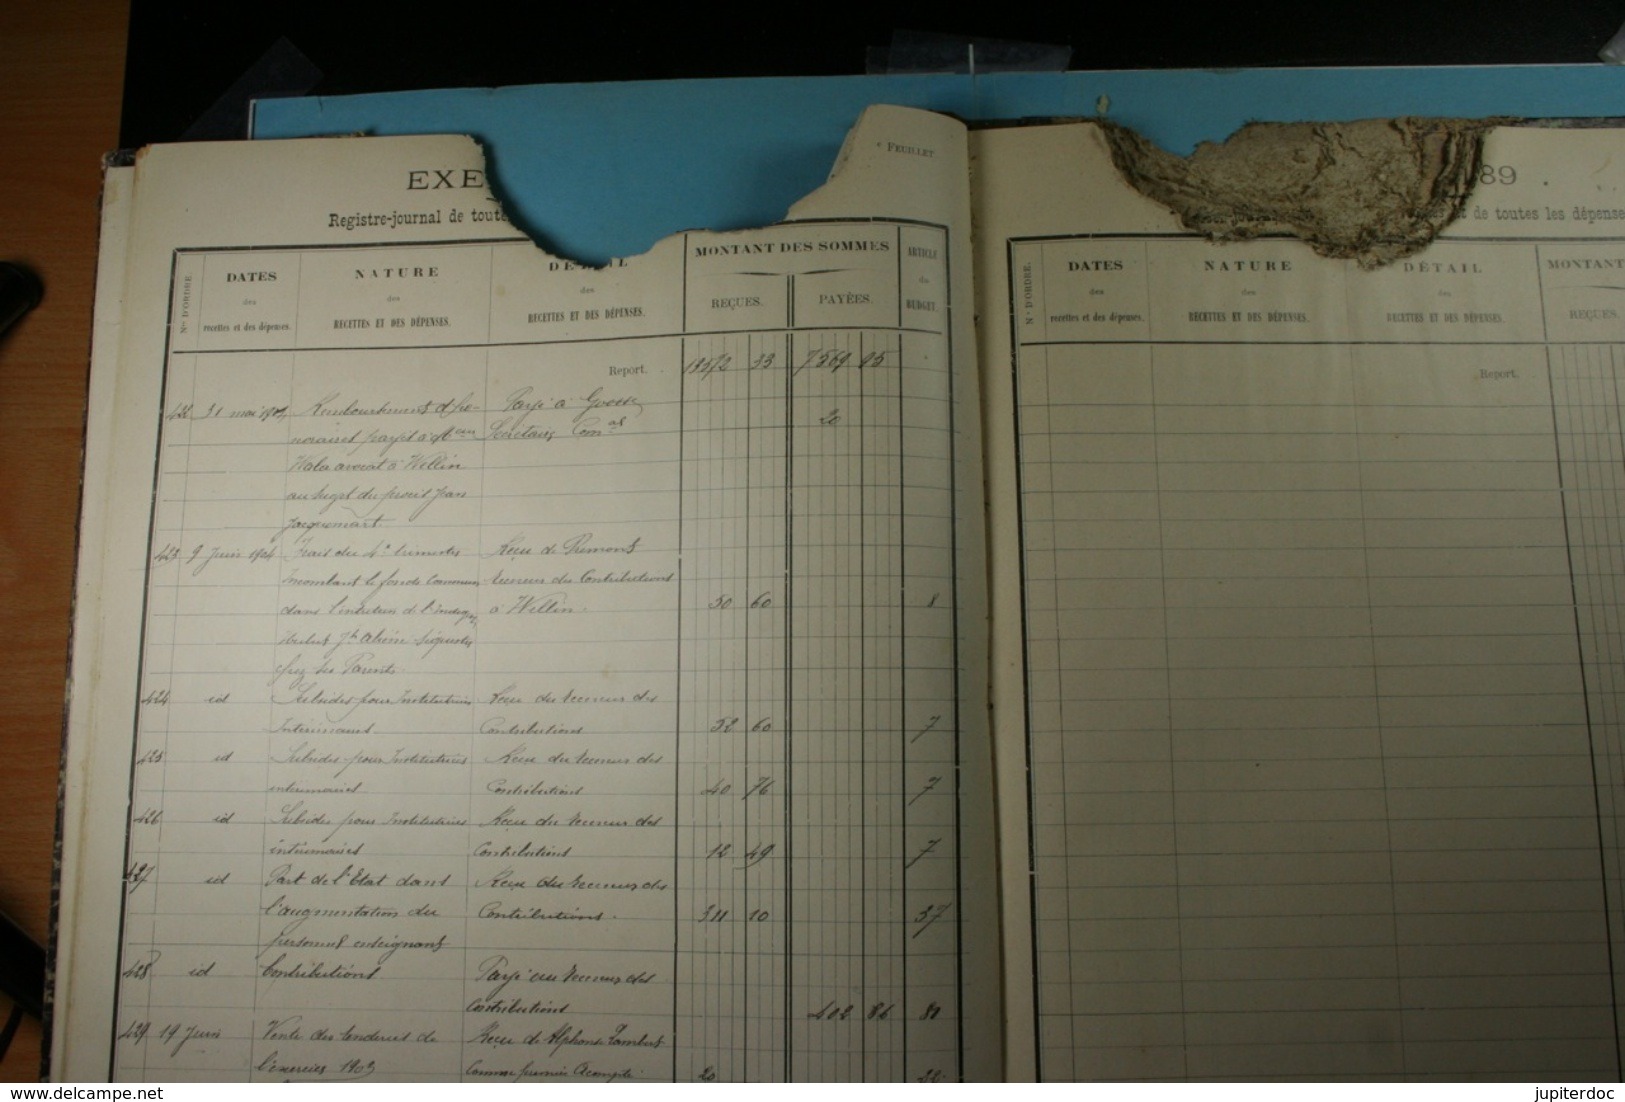 EXE
Registre-journal de toute
e FEUILLET
Nos D'ORDRE
DATES
des
recettes et des dépenses.
NATURE
des
RECETTES ET DES DÉPENSES.
DÉTAIL
des
RECETTES ET DES DÉPENSES.
MONTANT DES SOMMES
REÇUES.
PAYÉES.
ARTICLE
du
BUDGET.
Report. 18572 33 7569 95
31 mai Payé à Gosse
payés à Secrétaire Com al 20
avocat à Wellin
au sujet du procès
Jacquemart.
423 9 Juin 1904 Frais du 4e trimestre Reçu de
Incombant le fonds Commun Receveur des Contributions
dans l'entretien de à Wellin. 50 60 8
chez ses Parents.
424 id Subsides pour Institutrices Reçu du Receveur des
Intérimaires. Contributions 52 60 7
425 id Subsides pour Institutrices Reçu du Receveur des
intérimaires Contributions 40 76 7
426 id Subsides pour Institutrices Reçu du Receveur des
intérimaires Contributions 12 49 7
427 id Part de l'Etat dans Reçu du Receveur des
l'augmentation du Contributions. 311 10 37
personnel enseignant
428 id Contributions Payé au Receveur des
Contributions 402 86 80
429 19 Juin Vente des de Reçu de Alphonse Lambert
l'exercice 1903 Comme premier Acompte. 20
189
et de toutes les dépense
Nos D'ORDRE.
DATES
des
recettes et des dépenses.
NATURE
des
RECETTES ET DES DÉPENSES.
DÉTAIL
des
RECETTES ET DES DÉPENSES.
MONTANT
REÇUES.
Report.
jupiterdoc